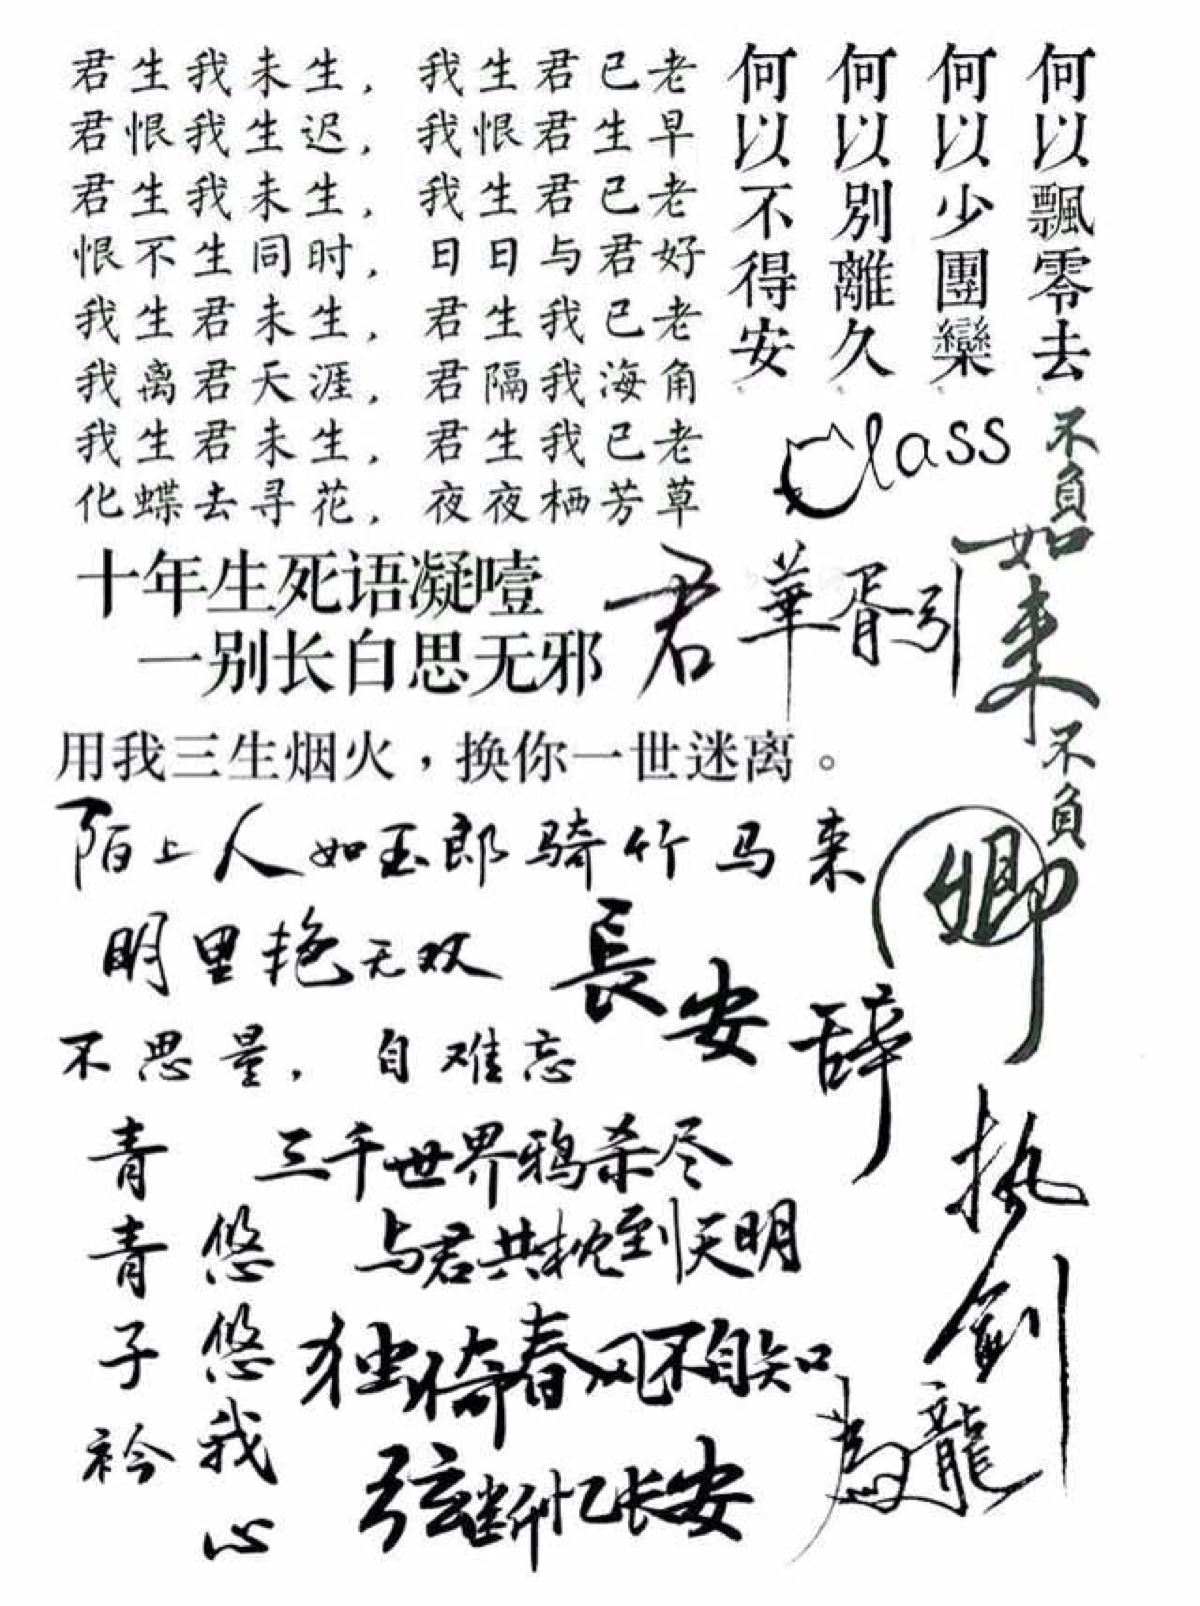 君生我未生，我生君已老
君恨我生迟，我恨君生早
君生我未生，我生君已老
恨不生同时，日日与君好
我生君未生，君生我已老
我离君天涯，君隔我海角
我生君未生，君生我已老
化蝶去寻花，夜夜栖芳草
何以飄零去
何以少團欒
何以別離久
何以不得安
Class
不负如来不负卿
十年生死语凝噎
一别长白思无邪
君
華胥引
用我三生烟火，换你一世迷离。
陌上人如玉郎骑竹马来
明里艳无双
長安辞
不思量，自难忘
三千世界鸦杀尽
与君共枕到天明
青青子衿
悠悠我心
独倚春风不自知
弦断忆长安
执剑
为龍